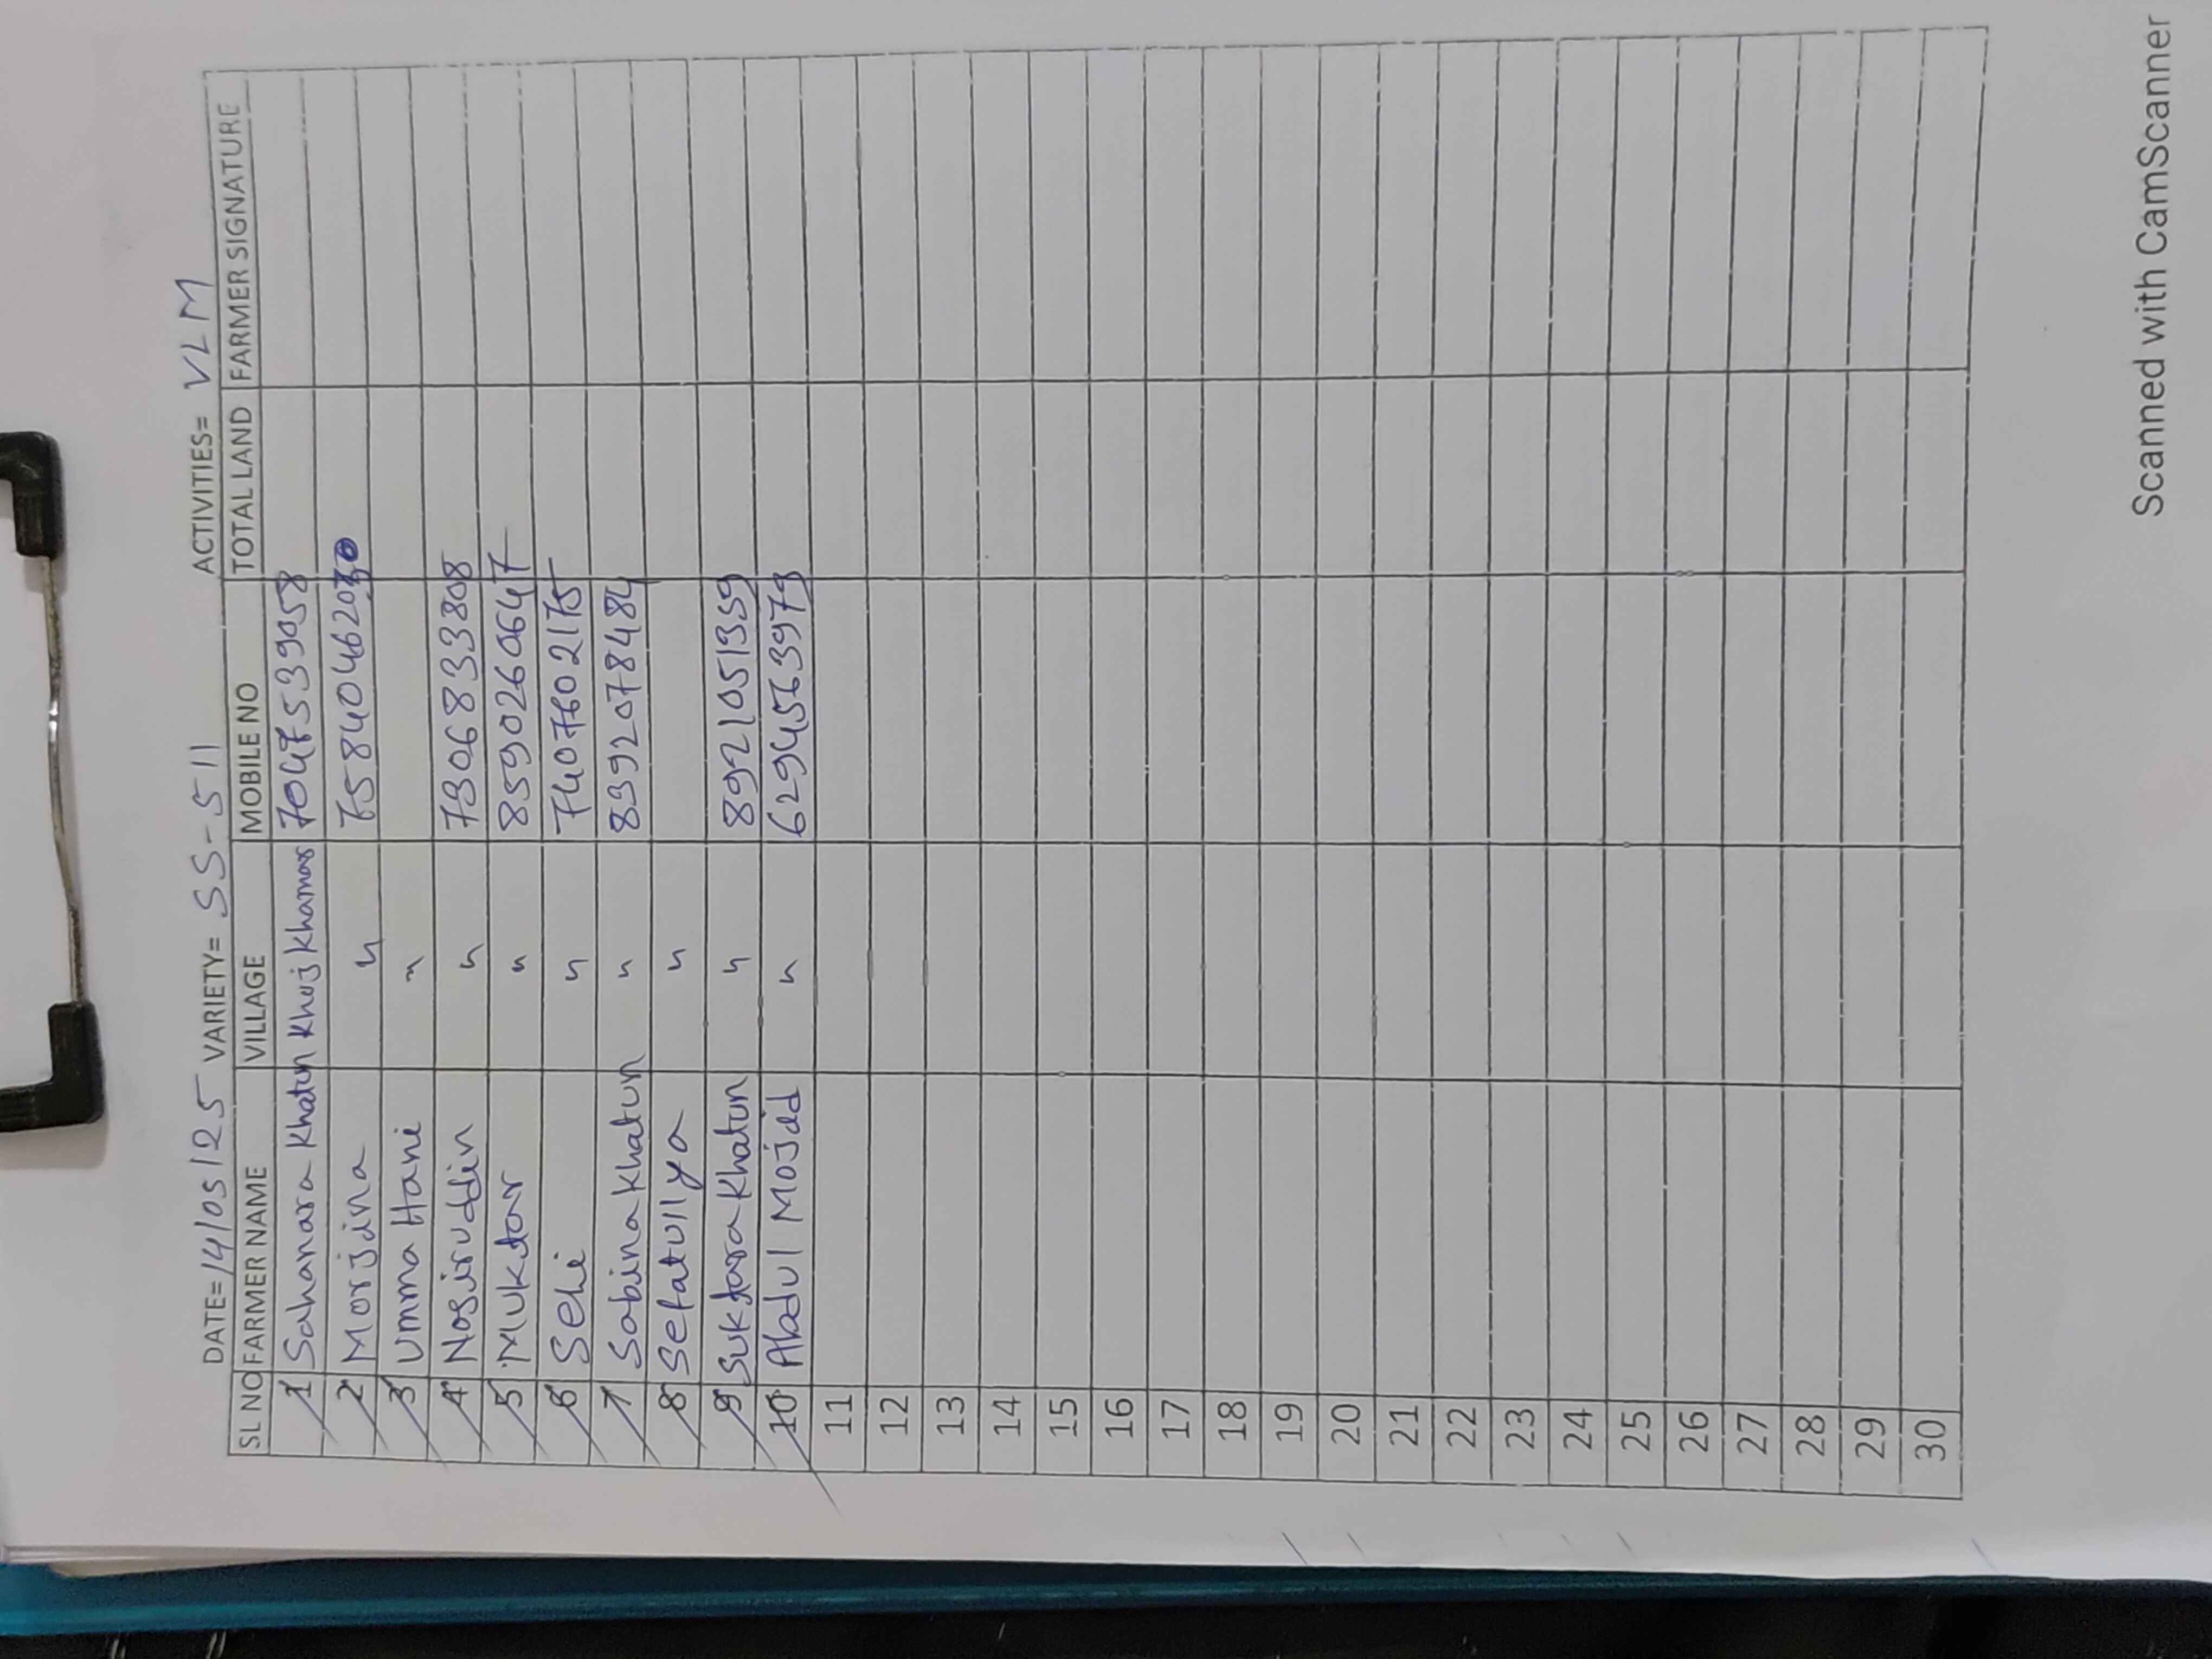 DATE= 14/05/25 VARIETY= SS-511 ACTIVITIES= VLM
SL NO FARMER NAME VILLAGE MOBILE NO TOTAL LAND FARMER SIGNATURE
1 Sahanara Khatun Khoj Khamar 7047539058
2 Morjina 〃
3 Umma Hani 〃
4 Nosiruddin 〃 7306833808
5 Muktar 〃 8590260647
6 Seli 〃 7407602175
7 Sabina Khatun 〃 8392078484
8 Sefatullya 〃
9 Suktara Khatun 〃 8921051359
10 Abdul Mojid 〃 6294563979
11
12
13
14
15
16
17
18
19
20
21
22
23
24
25
26
27
28
29
30
Scanned with CamScanner